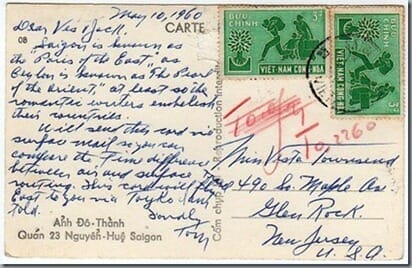 May 10, 1960
Dear Ves Heck.
Saigon is known as
the "Paris of the East," as
Ceylon is known as "The Pearl
of the Orient," at least so the
romantic writers embellish
their countries.
Will send this card via
surface mail so you can
compare the time difference
between air and surface
routing. This card will go
East to you via Tokyo I am
told.
Sincerely
Tom
08
CARTE
BƯU CHÍNH
3đ
VIỆT-NAM CỘNG-HÒA
BƯU CHÍNH
3đ
VIỆT-NAM CỘNG-HÒA
To, 2260
Miss Vista Townsend
490 So. Maple Ave
Glen Rock.
New Jersey
U.S.A.
Cấm chụp lại Reproduction interdite
Ảnh Đô-Thành
Quán 23 Nguyễn-Huệ Saigon